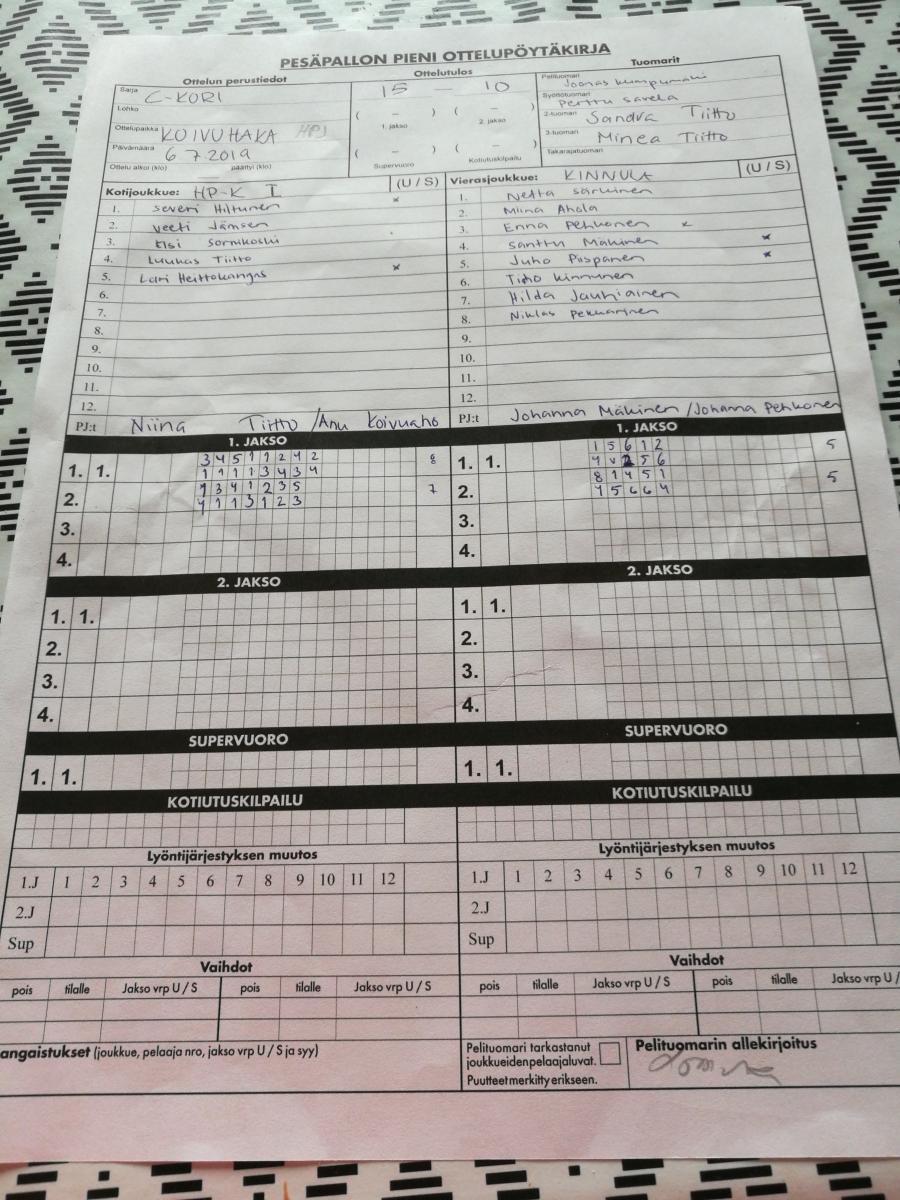 PESÄPALLON PIENI OTTELUPÖYTÄKIRJA
Ottelun perustiedot
Sarja C-KORI
Lohko
Ottelupaikka KOIVUHAKA HPJ
Päivämäärä 6 7 2019
Ottelu alkoi (klo) päättyi (klo)
Ottelutulos
15 – 10
( – ) ( – )
1. jakso 2. jakso
( – ) ( – )
Supervuoro Kotiutuskilpailu
Tuomarit
Pelituomari Joonas
Syöttötuomari Perttu Savela
2-tuomari Sandra Tiitto
3-tuomari Minea Tiitto
Takarajatuomari
Kotijoukkue: HP-K I (U / S)
1. Severi Hiltunen x
2. Veeti Jämsen
3. Sornikoski
4. Luukas Tiitto
5. Lari Heittokangas x
6.
7.
8.
9.
10.
11.
12.
PJ:t Niina Tiitto / Anu Koivuaho
Vierasjoukkue: KINNULA (U / S)
1. Netta
2. Miina Ahola
3. Enna Pehkonen x
4. Santtu Mäkinen x
5. Juho Piispanen x
6. Timo Kinnunen
7. Hilda Jauhiainen
8. Niklas Pekkarinen
9.
10.
11.
12.
PJ:t Johanna Mäkinen / Johanna Pehkonen
1. JAKSO
1. 1. 3 4 5 1 1 2 4 2 8
1 1 1 1 3 4 3 4
2. 1 3 4 1 2 3 5 7
4 1 1 3 1 2 3
3.
4.
1. JAKSO
1. 1. 1 5 6 1 2 5
5 6
2. 8 1 4 5 1 5
4 5 6 6 4
3.
4.
2. JAKSO
1. 1.
2.
3.
4.
2. JAKSO
1. 1.
2.
3.
4.
SUPERVUORO
1. 1.
SUPERVUORO
1. 1.
KOTIUTUSKILPAILU
KOTIUTUSKILPAILU
Lyöntijärjestyksen muutos
1.J 1 2 3 4 5 6 7 8 9 10 11 12
2.J
Sup
Lyöntijärjestyksen muutos
1.J 1 2 3 4 5 6 7 8 9 10 11 12
2.J
Sup
Vaihdot
pois tilalle Jakso vrp U / S pois tilalle Jakso vrp U / S
Vaihdot
pois tilalle Jakso vrp U / S pois tilalle Jakso vrp U /
angaistukset (joukkue, pelaaja nro, jakso vrp U / S ja syy)
Pelituomari tarkastanut
joukkueiden pelaajaluvat.
Puutteet merkitty erikseen.
Pelituomarin allekirjoitus